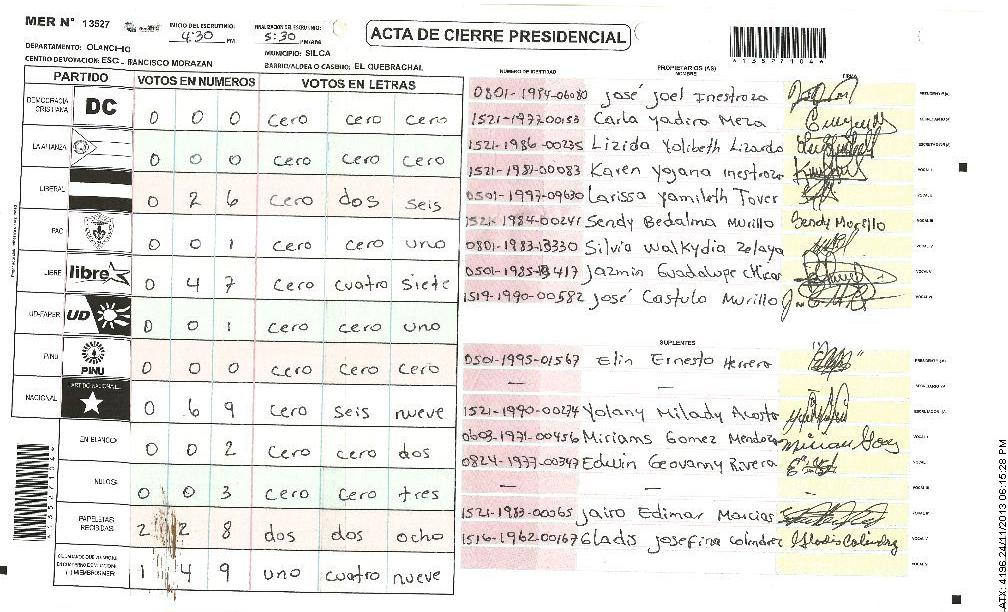 MER N° 13527
INICIO DEL ESCRUTINIO: 4:30 PM
FINALIZACION DEL ESCRUTINIO: 5:30 PM/AM
ACTA DE CIERRE PRESIDENCIAL
DEPARTAMENTO: OLANCHO
MUNICIPIO: SILCA
CENTRO DE VOTACION: ESC. FRANCISCO MORAZAN
BARRIO/ALDEA O CASERIO: EL QUEBRACHAL
PARTIDO VOTOS EN NUMEROS VOTOS EN LETRAS
DEMOCRACIA CRISTIANA DC 0 0 0 cero cero cero
LA ALIANZA 0 0 0 cero cero cero
LIBERAL 0 2 6 cero dos seis
PAC 0 0 1 cero cero uno
LIBRE libre 0 4 7 cero cuatro siete
UD-FAPER UD 0 0 1 cero cero uno
PINU PINU 0 0 0 cero cero cero
NACIONAL 0 6 9 cero seis nueve
EN BLANCO 0 0 2 cero cero dos
NULOS 0 0 3 cero cero tres
PAPELETAS RECIBIDAS 2 2 8 dos dos ocho
1 4 9 uno cuatro nueve
NUMERO DE IDENTIDAD PROPIETARIOS (AS) NOMBRE FIRMA
0801-1984-06080 José Joel Inestroza
1521-1977-00153 Carla Yadira Meza
1521-1986-00235 Lizida Yolibeth Lizardo
1521-1981-00083 Karen Yojana inestroza
0501-1997-09630 Larissa Yamileth Tover
1521-1984-00241 Sendy Bedalma Murillo Sendy Murillo
0801-1983-13330 Silvia Walkydia Zelaya
0501-1985-13417 Jazmin Guadalupe
1519-1990-00582 José Castulo Murillo
SUPLENTES
0501-1995-01567 Elin Ernesto Herrera
— —
1521-1990-00274 Yolany Milady Acosta
0603-1971-00456 Miriams Gomez Mendoza
0824-1977-00347 Edwin Geovanny Rivera
— — -
1521-1983-00065 Jairo Edimar Marcias
1516-1962-00167 Gladis Josefina Colindrez Gladis Colindrez
4196.24/11/2013 06:15:28 PM